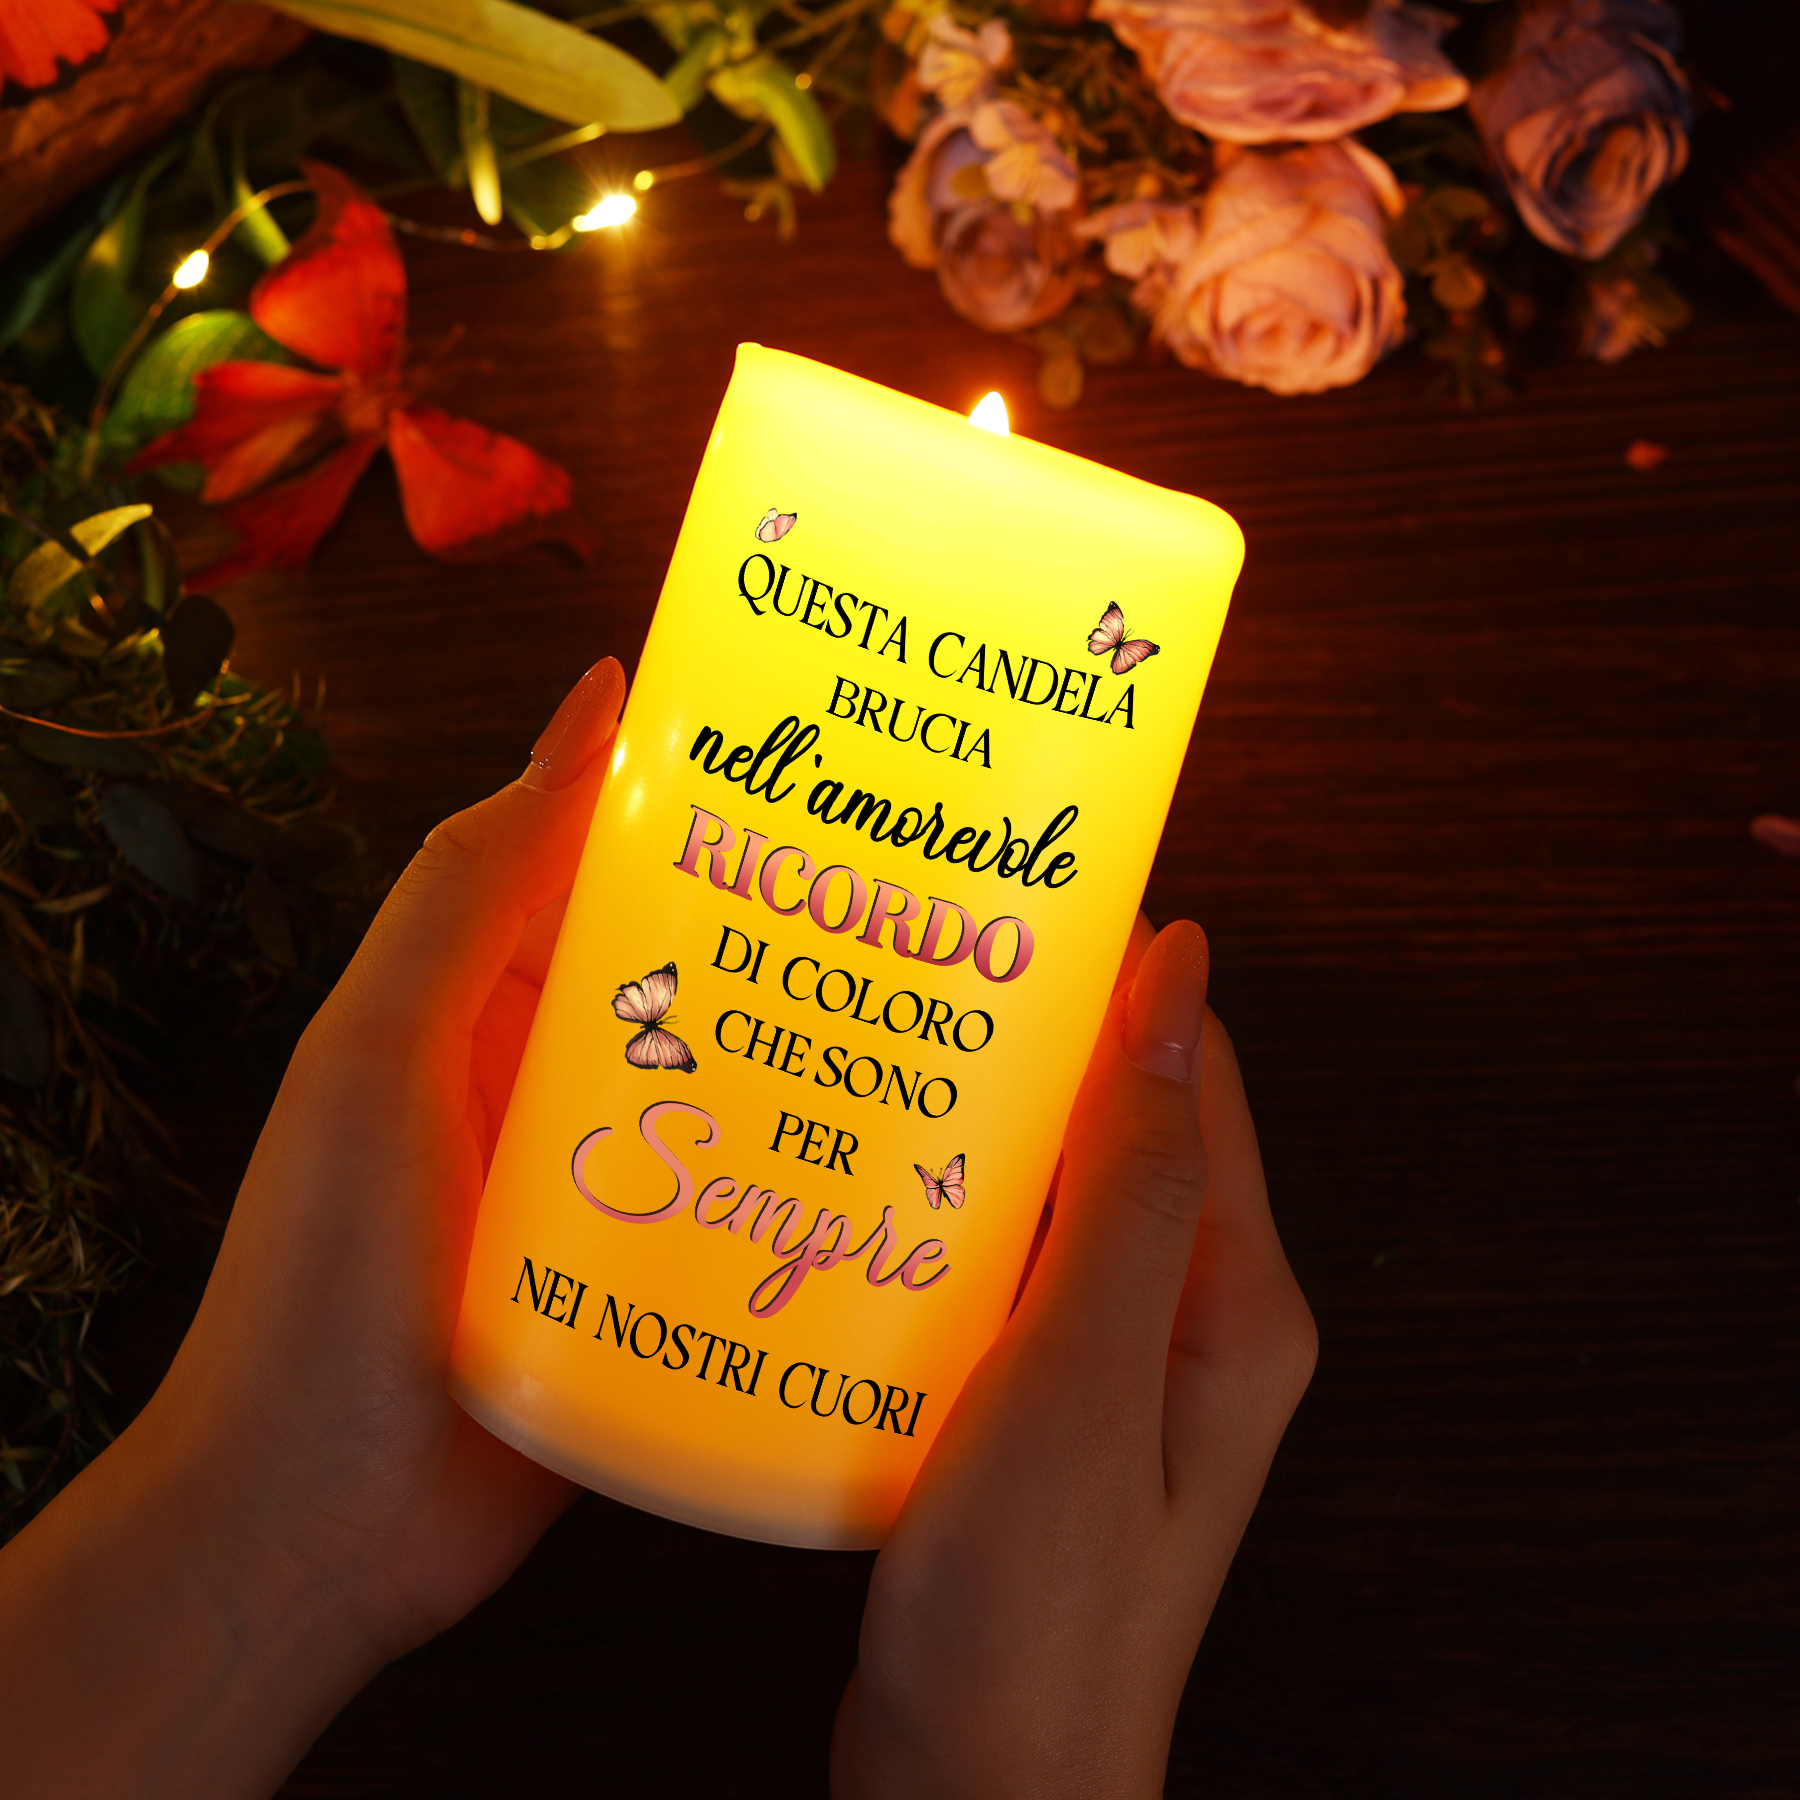 QUESTA CANDELA
BRUCIA
nell'amorevole
RICORDO
DI COLORO
CHE SONO
PER
Sempre
NEI NOSTRI CUORI